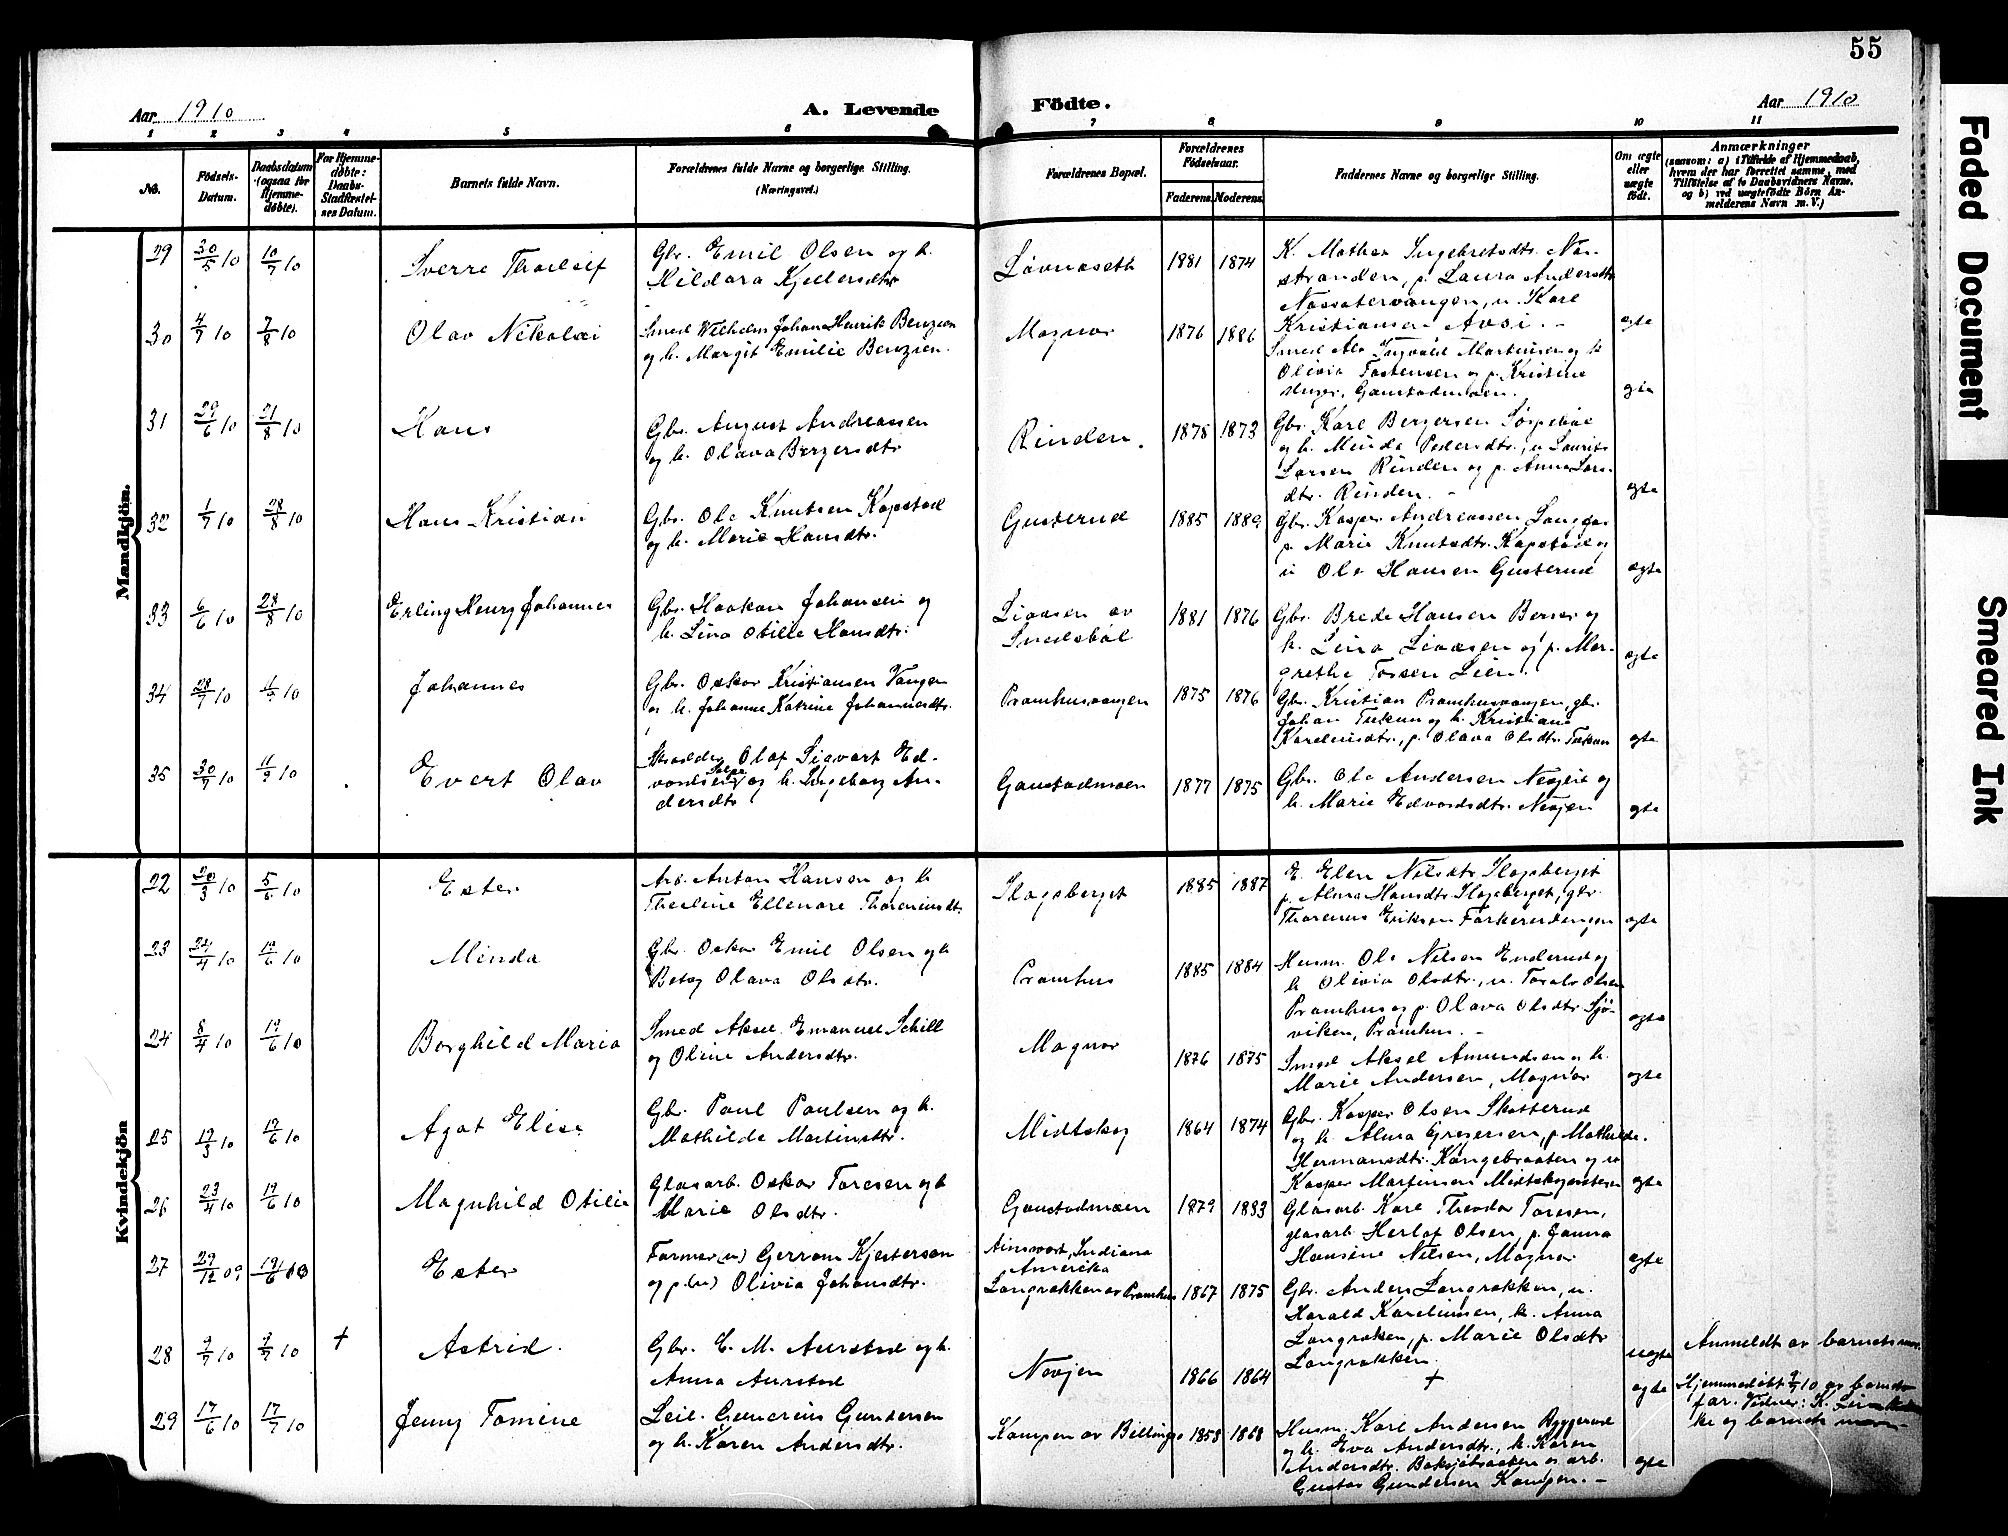 55
Aar 1910
A. Levende
Födte.
Aar 1910
1 2 3 4 5 6 7 8 9 10 11
No.
Födsels-
Datum.
Daabsdatum
(ogsaa for
Hjemme-
döbte).
For Hjemme-
döbte:
Daabs-
Stadfæstel-
ses Datum.
Barnets fulde Navn.
Forældrenes fulde Navne og borgerlige Stilling.
(Næringsvei.)
Forældrenes Bopæl.
Forældrenes
Födselsaar.
Faderens. Moderens.
Faddernes Navne og borgerlige Stilling.
Om ægte
eller
uægte
födt.
Anmærkninger
(saasom: a) i Tilfælde af Hjemmedaab,
hvem der har forrettet samme, med
Tilföielse af to Daabsvidners Navne,
og b) ved uægtefödte Börn An-
melderens Navn m. V.)
Mandkjön.
29 30/5 10 10/7 10 Sverre Thorleif
Gbr. Emil Olsen og h.
Hildara Kjellersdtr
Lövnæseth 1881 1874
K. Mathea Ingebretsdtr. Næs-
stranden, p. Laura Andersdtr
u. Karl
Kristiansen Avsi. - ægte
30 4/7 10 7/8 10 Olav Nikolai
Smed Wilhelm Johan Henrik Benzien
og h. Margit Emilie Benzien.
Magnor 1876 1886
Smed Ingvald Martinsen og h
Olivia Tostensen og p. Kristine
Gaustadmoen. ægte
31 29/6 10 21/8 10 Hans
Gbr. August Andreassen
og h. Olava Bergersdtr
Rinden. 1878 1873
Gbr. Karl Bergersen Sörpeböl
og h. Minda Pedersdtr., u Laurits
Larsen Rinden og p. Anna Lars-
dtr. Rinden. - ægte
32 1/7 10 28/8 10 Hans Kristian
Gbr. Ole Knutsen Kapstad
og h. Marie Hansdtr.
Gusterud 1885 1889
Gbr. Kasper Andreassen
p. Marie Knutsdtr. Kapstad og
u Ole Hansen Gusterud ægte
33 6/6 10 28/8 10 Erling Henry Johannes
Gbr. Haakon Johansen og
h. Lina Otilie Hansdtr.
Liaasen av
Smedsböl 1881 1876
Gbr. Brede Hansen Berser og
h. Lina Liaasen og p. Mar-
grethe Tossen Lien. ægte
34 28/7 10 11/9 10 Johannes
Gbr. Oskar Kristiansen Vangen
og h. Johanne Katrine Johannesdtr.
Pramhusvangen 1875 1876
Gbr. Kristian Pramhusvangen, gbr.
Johan Tukun og h. Kristiane
Karelinsdtr., p. Olava Olsdtr. Tukun ægte
35 30/7 10 11/9 10 Evert Olav
Skrædder Olaf Sigvart Ed-
vardsen og h. Ingeborg An-
dersdtr
Gaustadmoen 1877 1875
Gbr. Ole Andersen Nesjen og
h. Marie Edvardsdtr. Nesjen ægte
Kvindekjön
22 20/3 10 5/6 10 Ester
Arb. Anton Hansen og h
Theoline Ellenore Thoreniusdtr.
Skogsberget 1885 1887
E. Elen Nilsdtr. Skogsberget
p. Alma Hansdtr. Skogsberget, gbr.
Thorenus Eriksen Farkerudengen ægte
23 24/4 10 19/6 10 Minda
Gbr. Oskar Emil Olsen og h
Betsy Olava Olsdtr.
Pramhus 1885 1884
Husm. Ole Nilsen Enderud og
h Olivia Olsdtr., u. Toralv Olsen
Pramhus og p. Olava Olsdtr. Sjö-
viken, Pramhus. - ægte
24 8/4 10 19/6 10 Borghild Maria
Smed Aksel Emanuel Schill
og Oline Andersdtr.
Magnor 1876 1875
Smed Aksel Amundsen og h.
Marie Andersen, Magnor ægte
25 19/3 10 19/6 10 Agot Elise
Gbr. Paul Paulsen og h.
Mathilde Martinsdtr.
Midtskog 1864 1874
Gbr. Kasper Olsen Skotterud
og h. Alma Gregersen, p Mathilde.
Hermansdtr. Kongebraaten og u
Kasper Martinsen Midtskogseteren ægte
26 23/4 10 19/6 10 Magnhild Otilie
Glasarb. Oskar Toresen og h
Marie Olsdtr.
Gaustadmoen 1879 1883
Glasarb. Karl Theodor Toresen,
glasarb Herlof Olsen, p. Janna
Hansine Nilsen, Magnor ægte
27 29/12 09 19/6 10 Ester
Farmer (u) Gerram Kjesterson
og p (u) Olivia Johansdtr.
Ainswort, Indiana
Amerika
Langrakken av Pramhus 1867 1875
Gbr. Anders Langrakken, u.
Harald Karelinsen, h. Anna
Langraken, p. Marie Olsdtr
Langrakken. uægte
Anmeldt av barnets mor.
28 9/7 10 9/7 10 + Astrid.
Gbr. E. M. Aurstad og h.
Anna Aurstad
Nevjen 1866 1864 + ægte
Hjemmedöbt 9/7 10 av barnets
far. Vidner: K.
ke og barnets
29 17/6 10 17/7 10 Jenny Tomine
Leil. Gunerius Gundersen
og h. Karen Andersdtr.
Kampen av Billingso 1858 1868
Husm. Karl Andersen Byggerud
og h. Eva Andersdtr., h. Karen
Andersdtr. Baksjöbraaten og arb.
Gustav Gundersen Kampen. - ægte
Faded Document
Smeared Ink